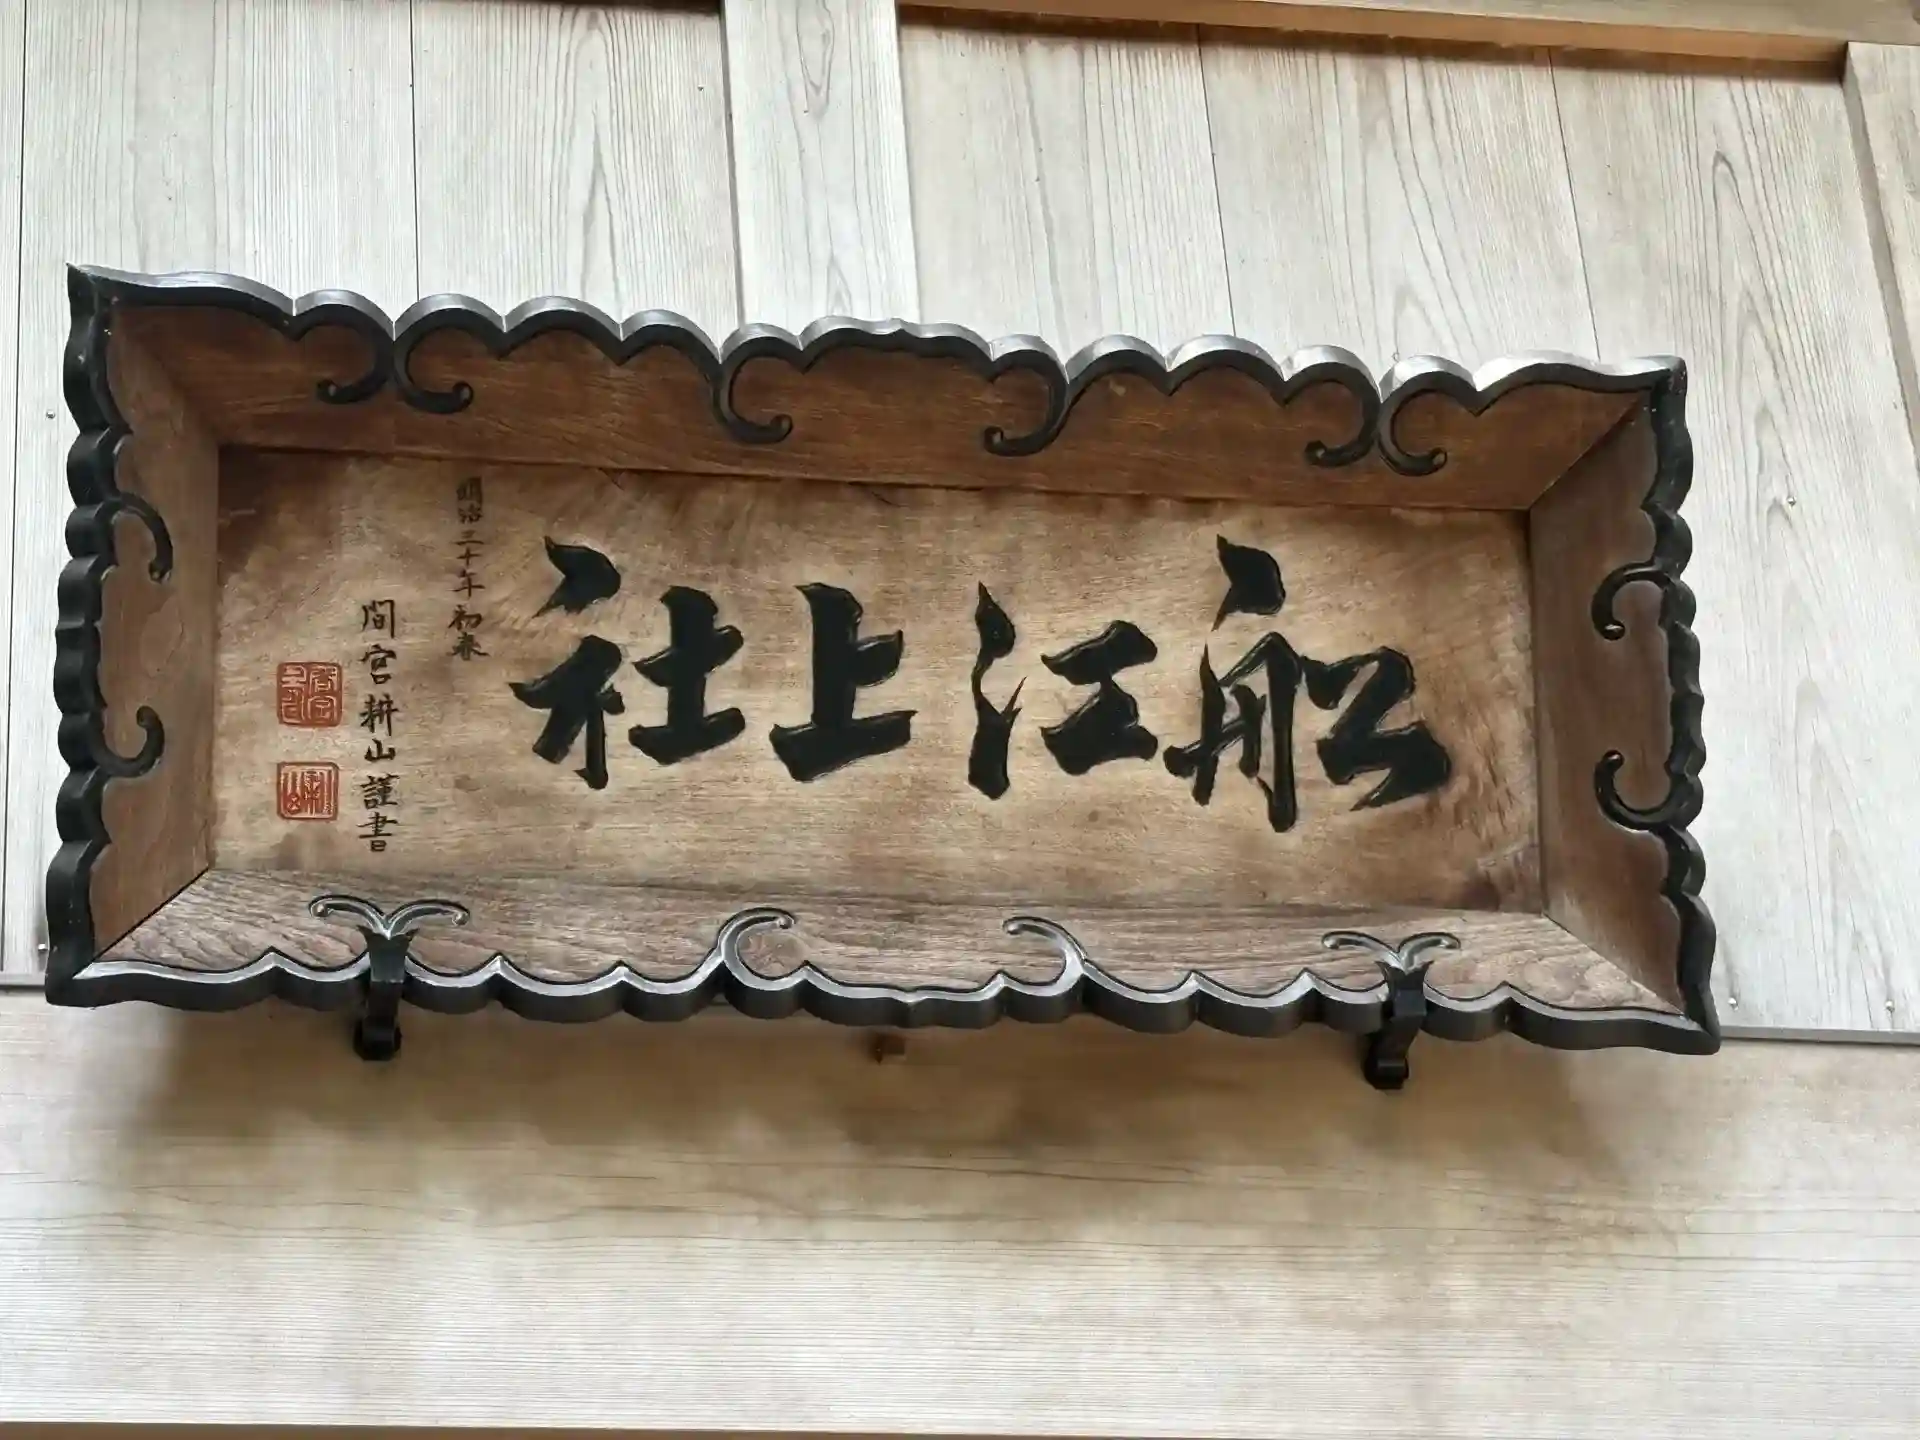 船江上社
明治三十年初春
間宮耕山謹書